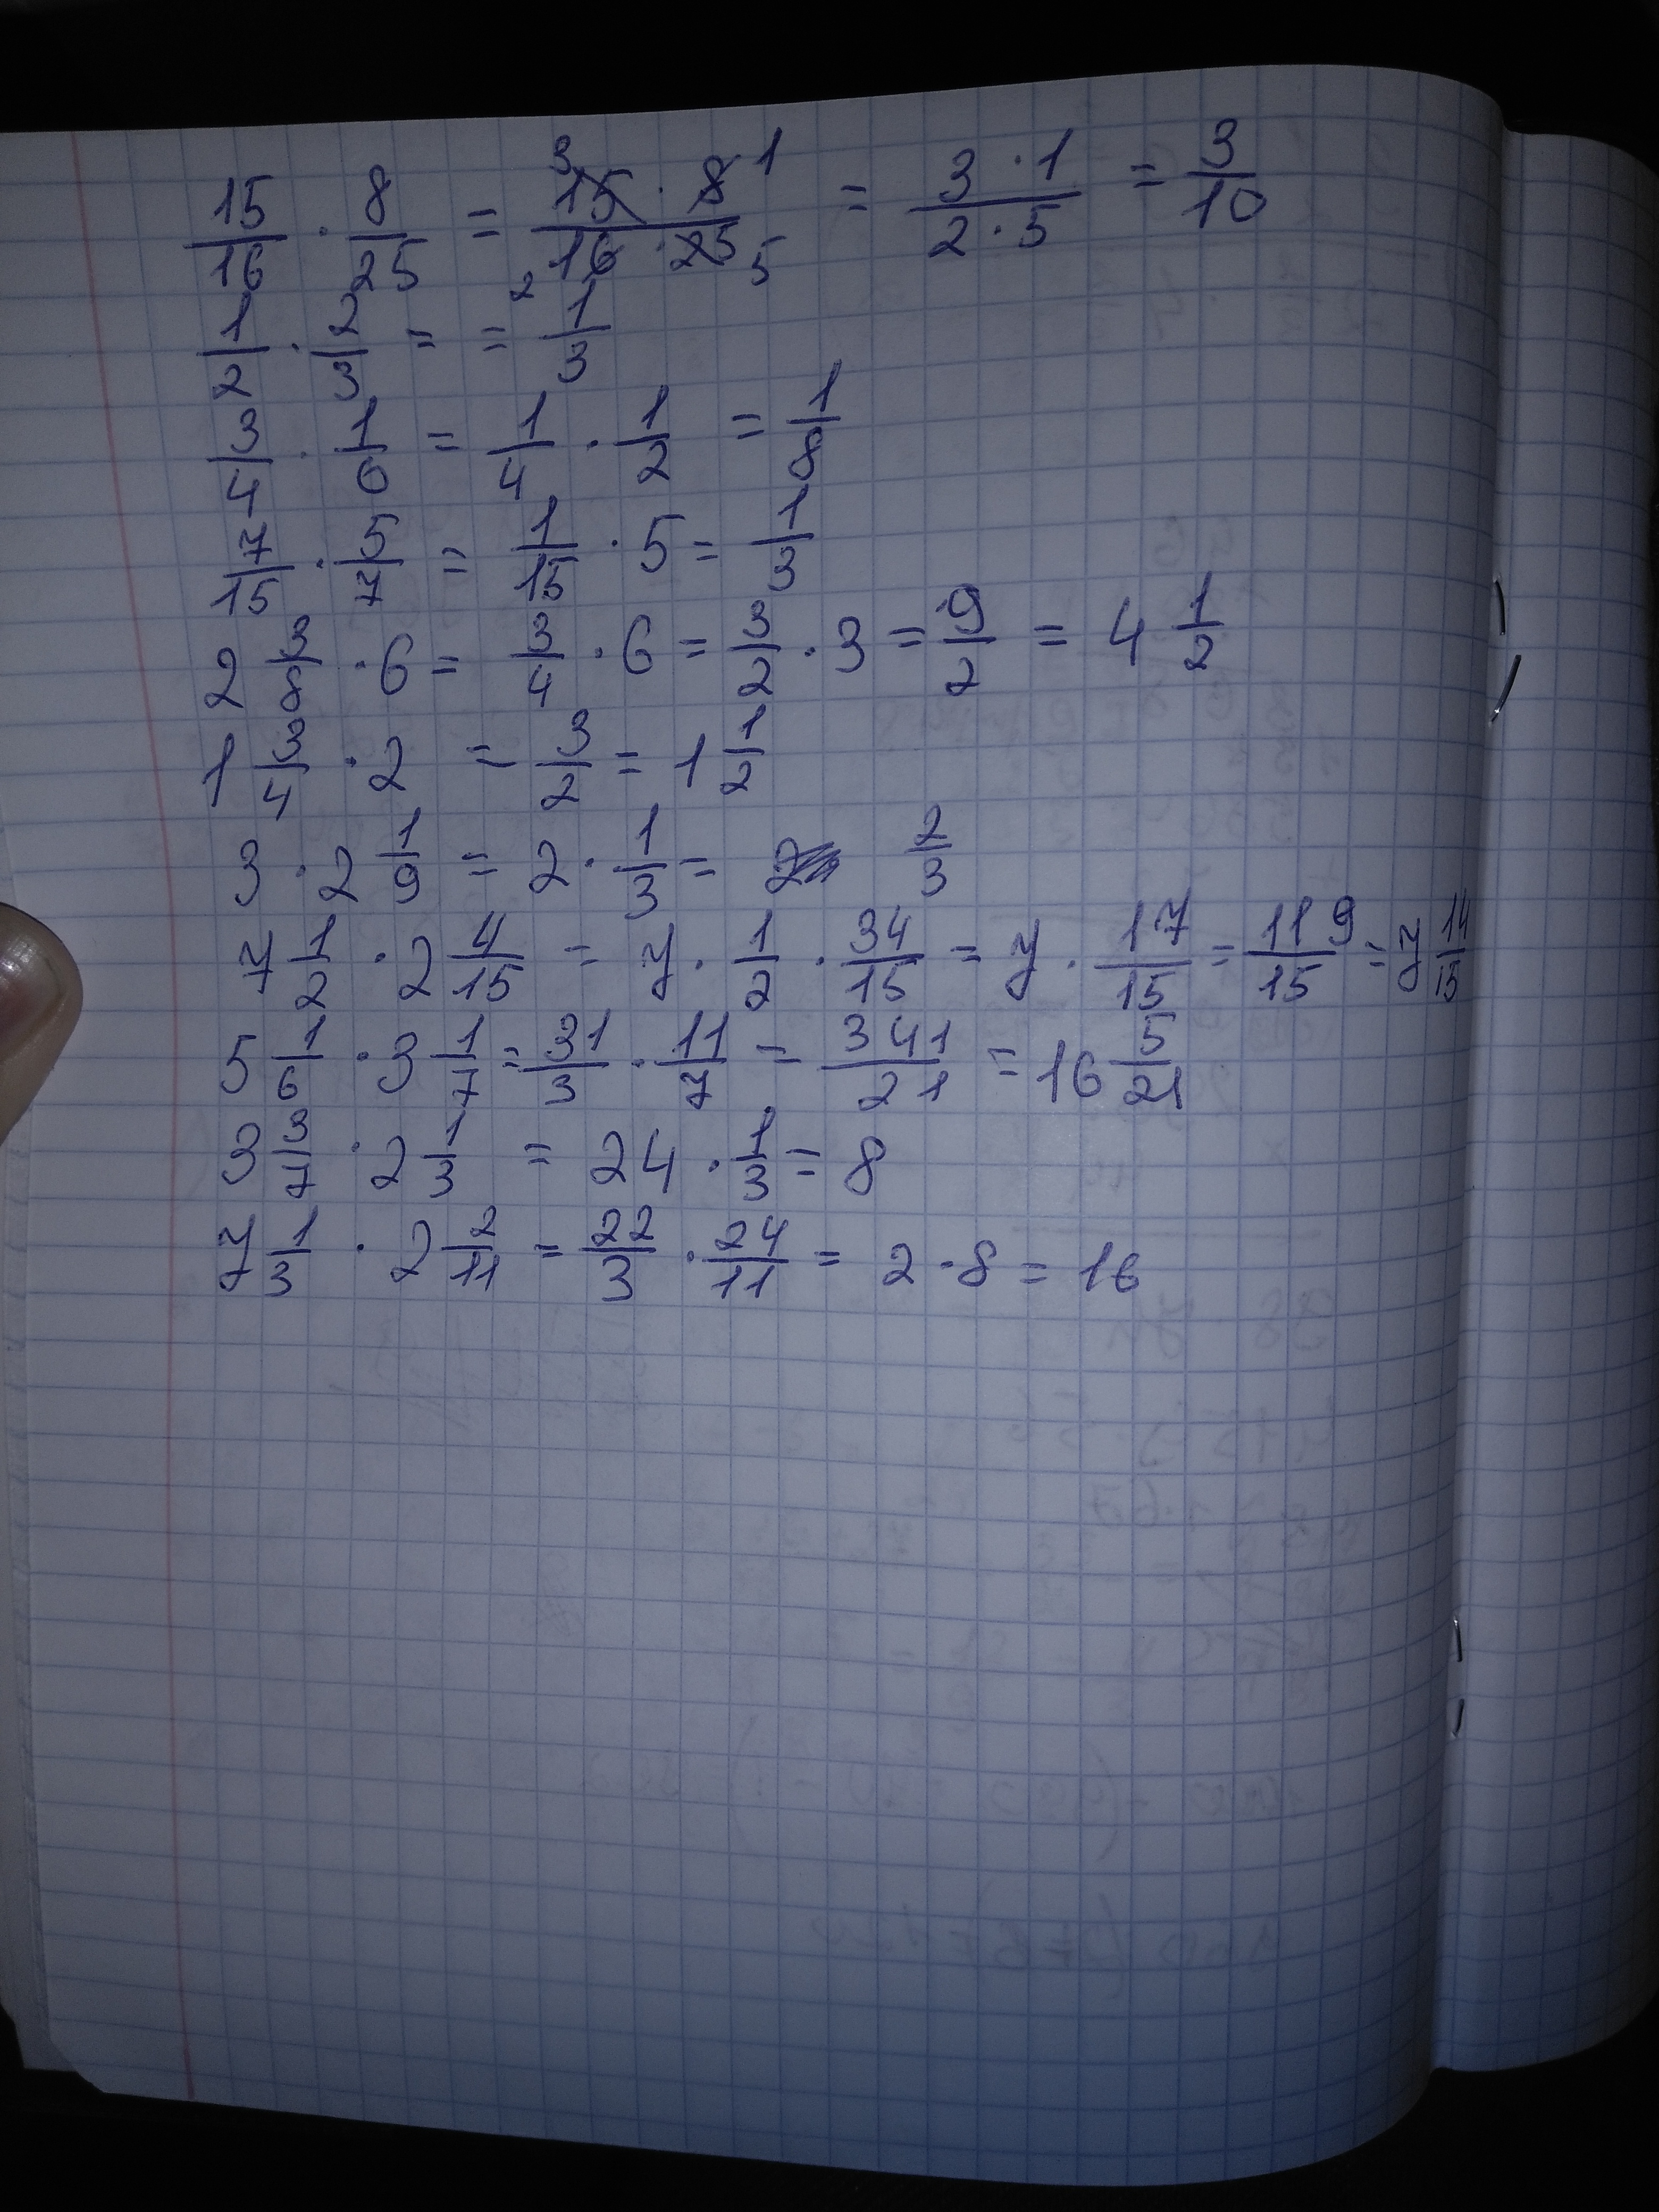 15/16 · 8/25 = 3 15 · 8 1 / 2 16 · 25 5 = 3 · 1 / 2 · 5 = 3/10
1/2 · 2/3 = = 1/3
3/4 · 1/6 = 1/4 · 1/2 = 1/8
7/15 · 5/7 = 1/15 · 5 = 1/3
2 3/8 · 6 = 3/4 · 6 = 3/2 · 3 = 9/2 = 4 1/2
1 3/4 · 2 = 3/2 = 1 1/2
3 · 2 1/9 = 2 · 1/3 = 2/3
7 1/2 · 2 4/15 = 7 · 1/2 · 34/15 = 7 · 17/15 = 119/15 = 7 14/15
5 1/6 · 3 1/7 = 31/3 · 11/7 = 341/21 = 16 5/21
3 3/7 · 2 1/3 = 24 · 1/3 = 8
7 1/3 · 2 2/11 = 22/3 · 24/11 = 2 · 8 = 16